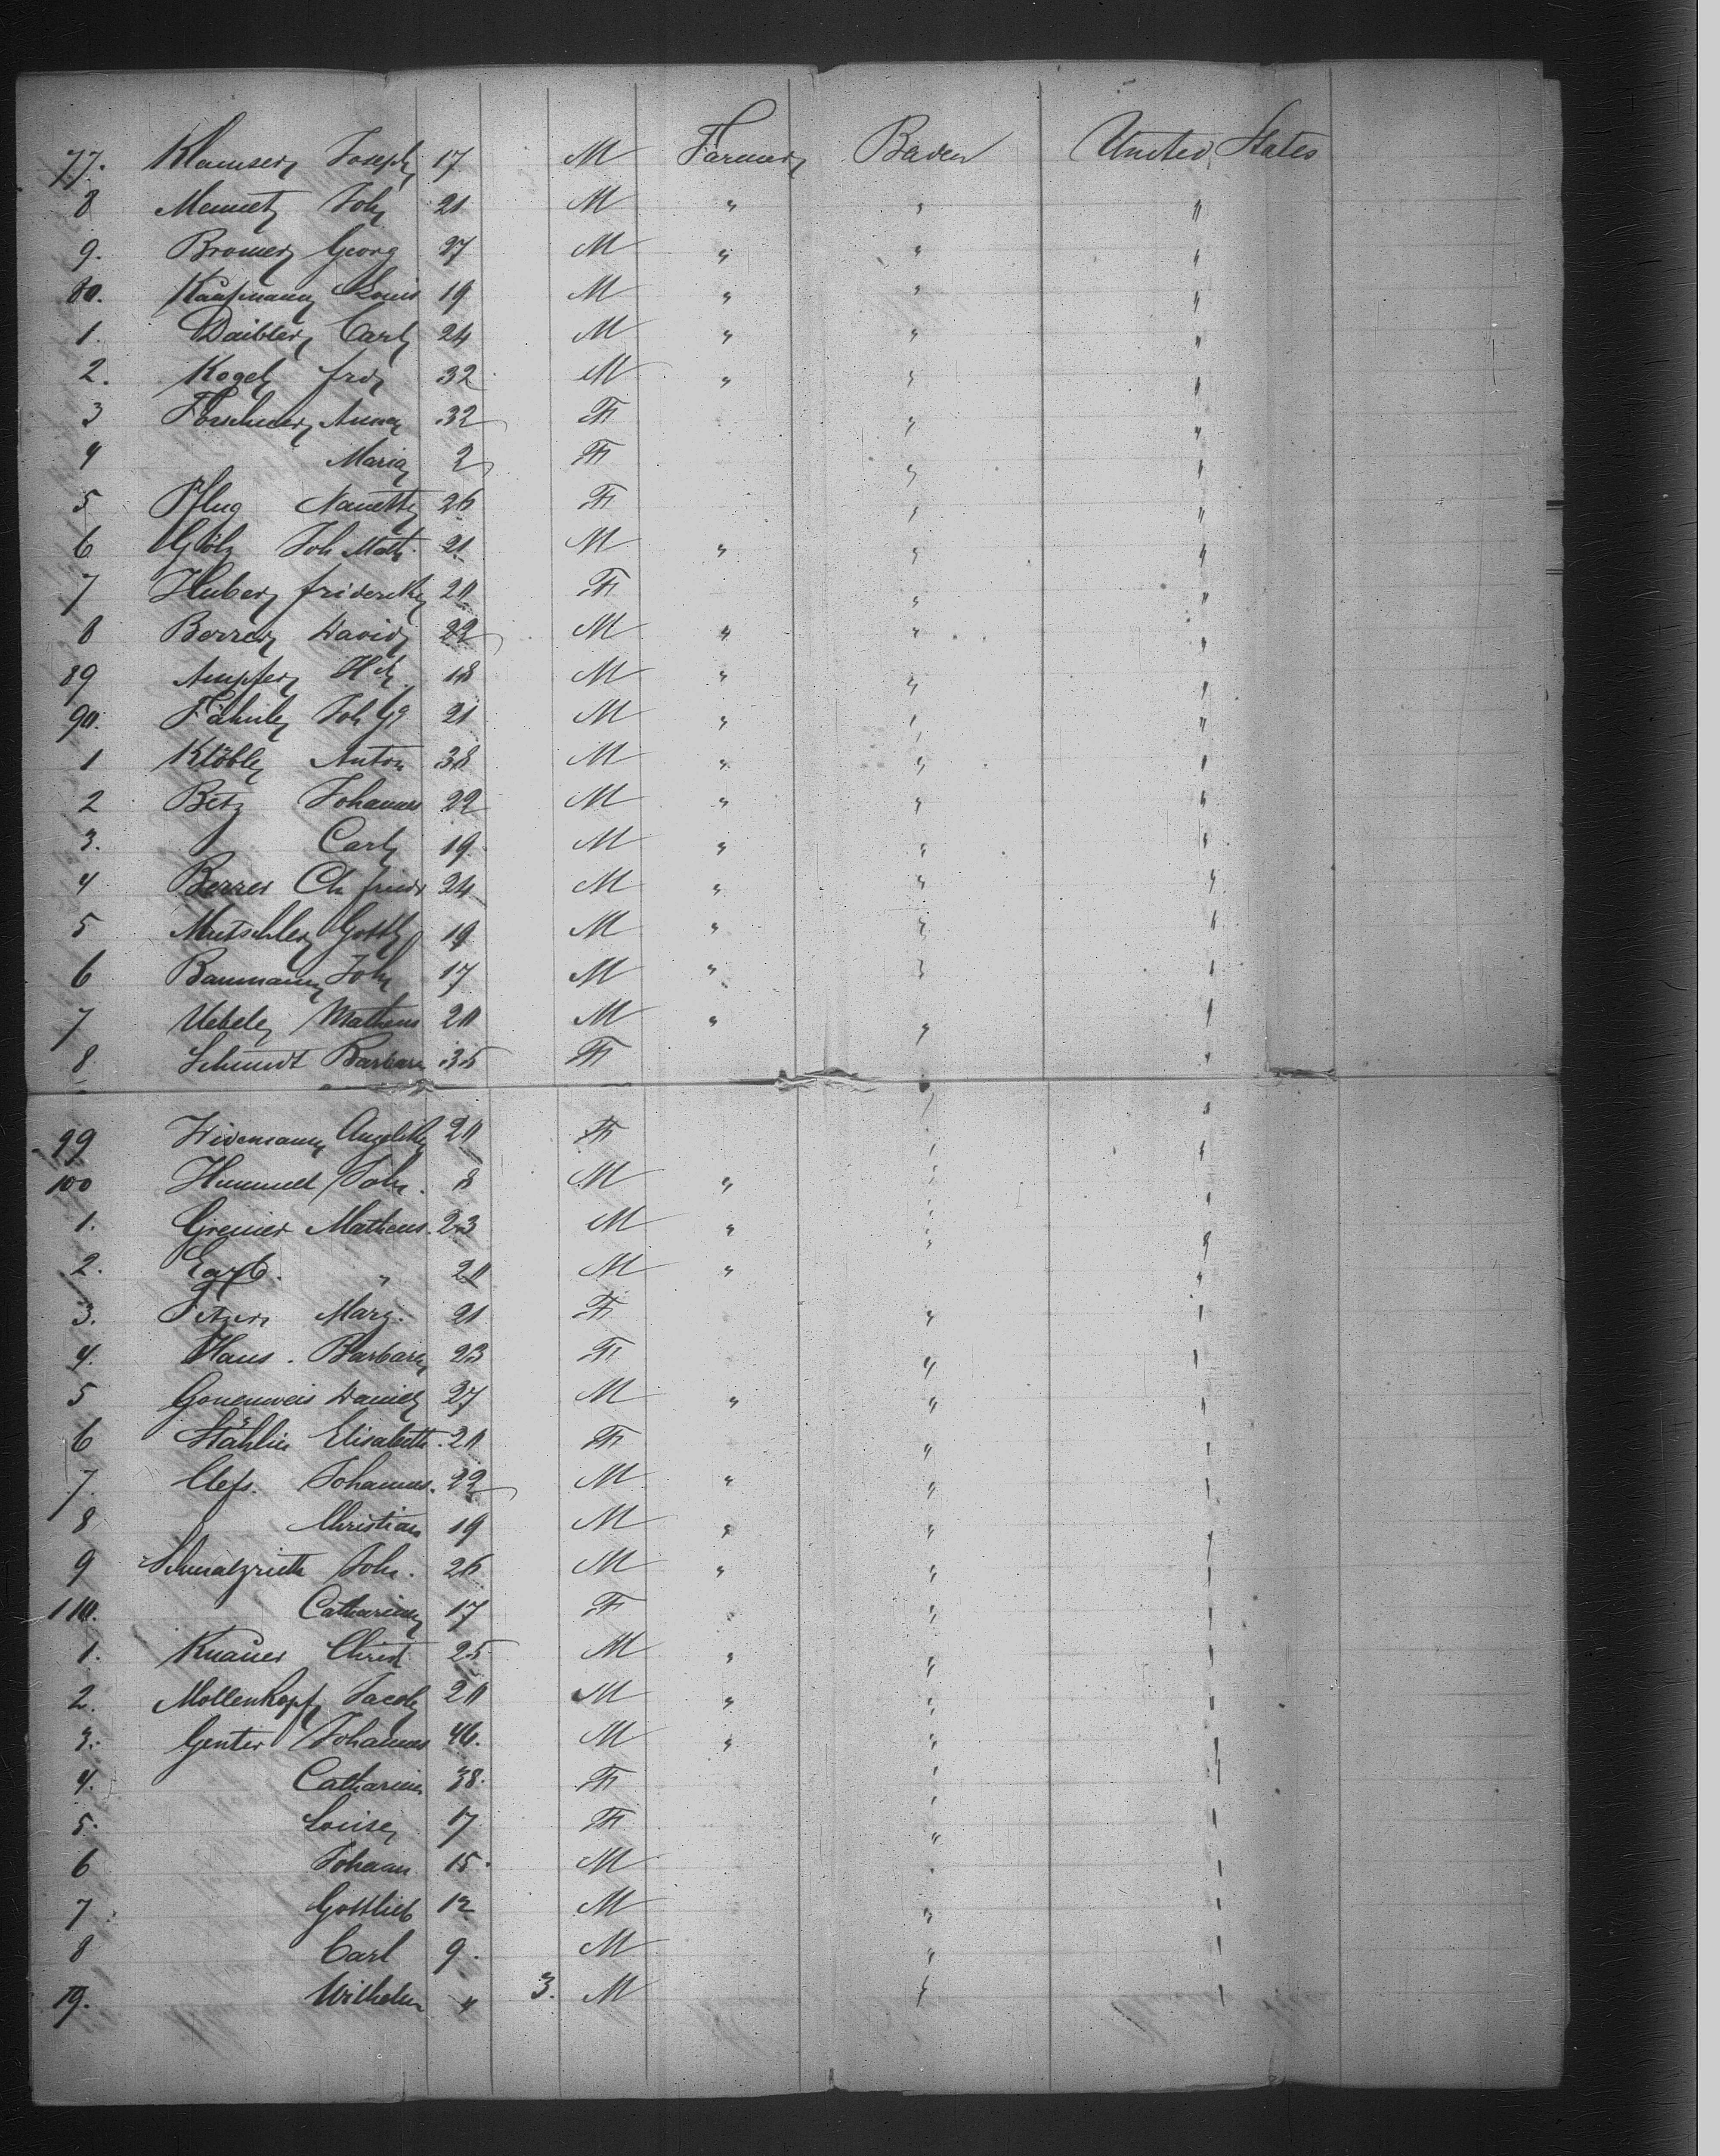 77. Klamser Joseph 17 M Farmer Baden United States
8 Joh 21 M " " "
9. Bromer Georg 27 M " " "
80. Kaufmann Louis 19 M " " "
1. Daibler Carl 24 M " " "
2. Kogel frdr 32 M " " "
3 Forschner Anna 32 F " "
4 Maria 2 F " "
5 Pflug Nanette 26 F " "
6 Götz Joh Math. 21 M " " "
7 Huber friderike 20 F " "
8 Berrer David 22 M " " "
89 Ampfer 18 M " " "
90. Fähnle Joh Gg 21 M " " "
1 Klöble Anton 38 M " " "
2 Betz Johannes 22 M " " "
3. Carl 19 M " " "
4 Berrer Ch friedr 24 M " " "
5 Mutschler Gottl 19 M " " "
6 Baumann Joh 17 M " " "
7 Uebele Matheus 20 M " " "
8 Schmidt Barbara 35 F "
99 Widemann Angelika 20 F " "
100 Hummel Joh. 18 M " " "
1. Greiner Matheus. 23 M " " "
2. " 20 M " " "
3. Marg. 21 F " "
4. Haus. Barbara 23 F " "
5 Gonenweis Daniel 27 M " " "
6 Stählin Elisabeth. 20 F " "
7. Clefs. Johannes. 22 M " " "
8 Christian 19 M " " "
9 Schmalzrieth Joh. 26 M " " "
110. Catharina 17 F " "
1. Knauer Christ 25 M " " "
2. Mollenkopf Jacob 20 M " " "
3. Genter Johannes 46. M " " "
4. Catharina 38. F " "
5. Louise 17 F " "
6 Johann 15. M " "
7 Gottlieb 12 M " "
8 Carl 9. M " "
19. Wilhelm " 3. M " "